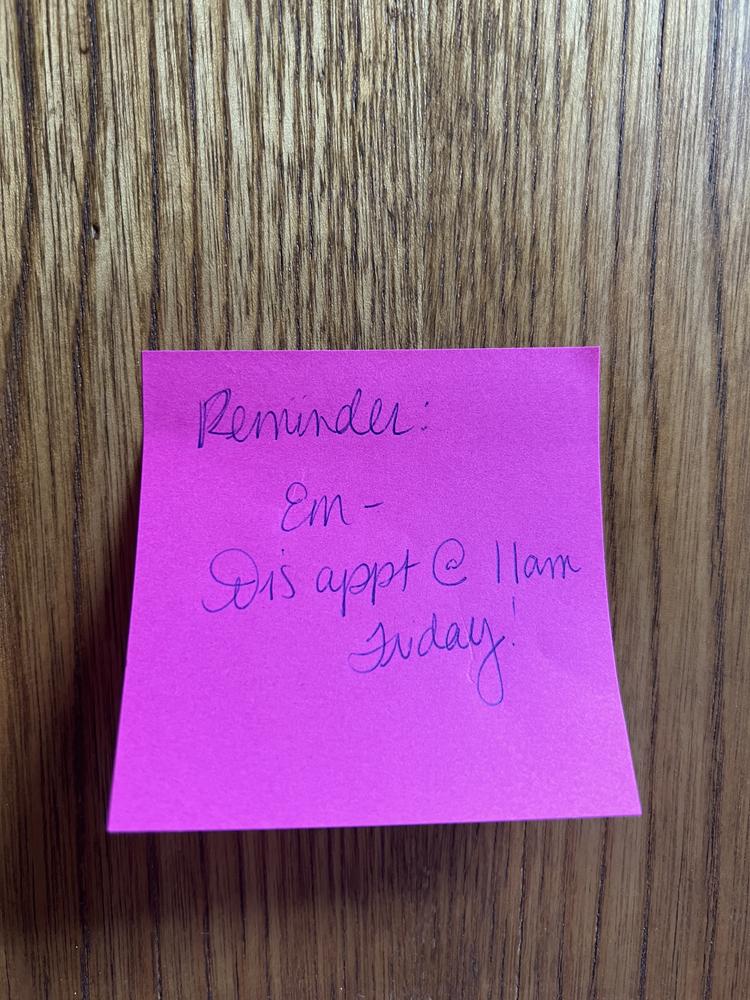 Reminder:
Em-
Dis appt @ 11am
Friday!